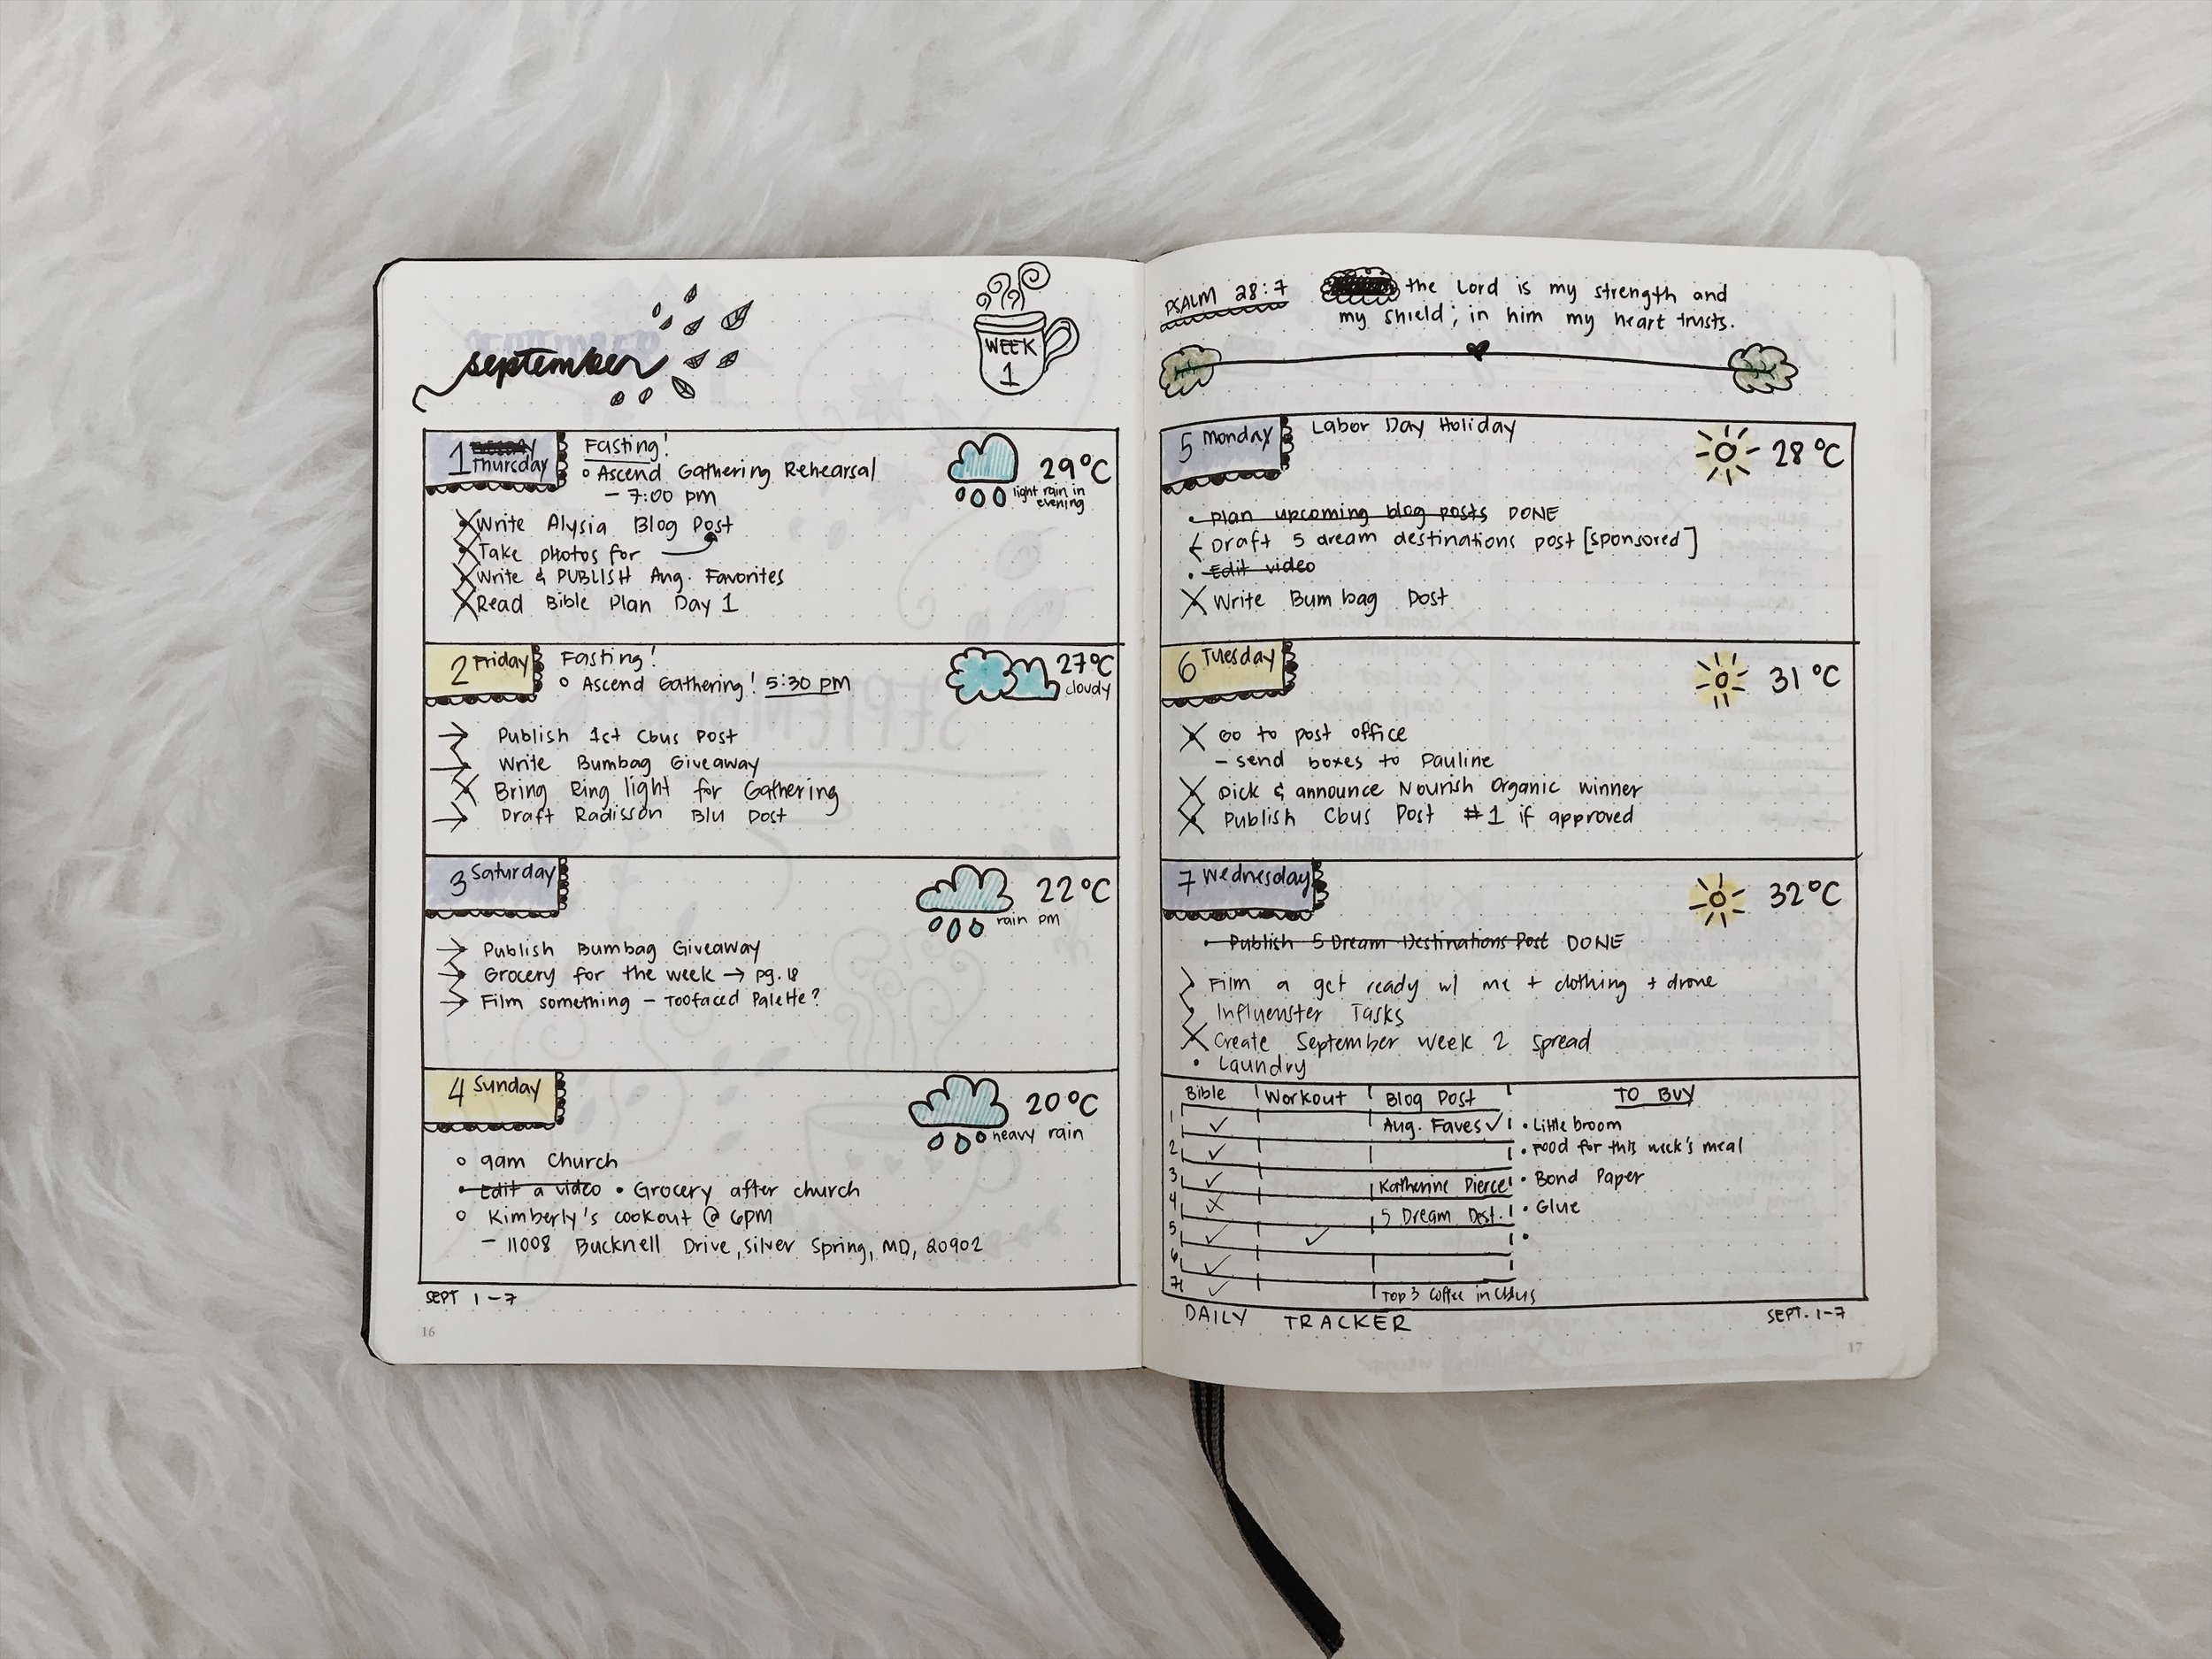 september
WEEK
1
1 Thursday
Fasting!
Ascend Gathering Rehearsal
- 7:00 pm
29°C
light rain in
evening
Write Alysia Blog Post
Take photos for
Write & PUBLISH Aug. Favorites
Read Bible Plan Day 1
2 Friday
Fasting!
Ascend Gathering! 5:30 pm
27°C
cloudy
→ Publish 1st Cbus Post
→ Write Bumbag Giveaway
Bring Ring light for Gathering
→ Draft Radisson Blu Post
3 Saturday
22°C
rain pm
→ Publish Bumbag Giveaway
→ Grocery for the week → pg. 18
→ Film something - Toofaced Palette?
4 Sunday
20°C
heavy rain
9am Church
• Edit a video • Grocery after church
Kimberly's cookout @ 6PM
- 11008 Bucknell Drive, Silver Spring, MD, 20902
SEPT 1-7
16
PSALM 28:7
the Lord is my strength and
my shield; in him my heart trusts.
5 Monday
Labor Day Holiday
28°C
• Plan upcoming blog posts DONE
Draft 5 dream destinations post [sponsored]
• Edit video
Write Bum bag Post
6 Tuesday
31°C
Go to post office
- send boxes to Pauline
Pick & announce Nourish Organic winner
Publish Cbus Post #1 if approved
7 Wednesday
32°C
• Publish 5 Dream Destinations Post DONE
Film a get ready w/ me + clothing + drone
Influenster Tasks
Create September Week 2 Spread
• Laundry
Bible Workout Blog Post TO BUY
1 ✓ Aug. Faves ✓ • Little broom
2 ✓ • Food for this week's meal
3 ✓ Katherine Pierce • Bond Paper
4 X 5 Dream Dest. • Glue
5 ✓ ✓ •
6 ✓
7 ✓ Top 3 Coffee in Cbus
DAILY TRACKER
SEPT. 1-7
17